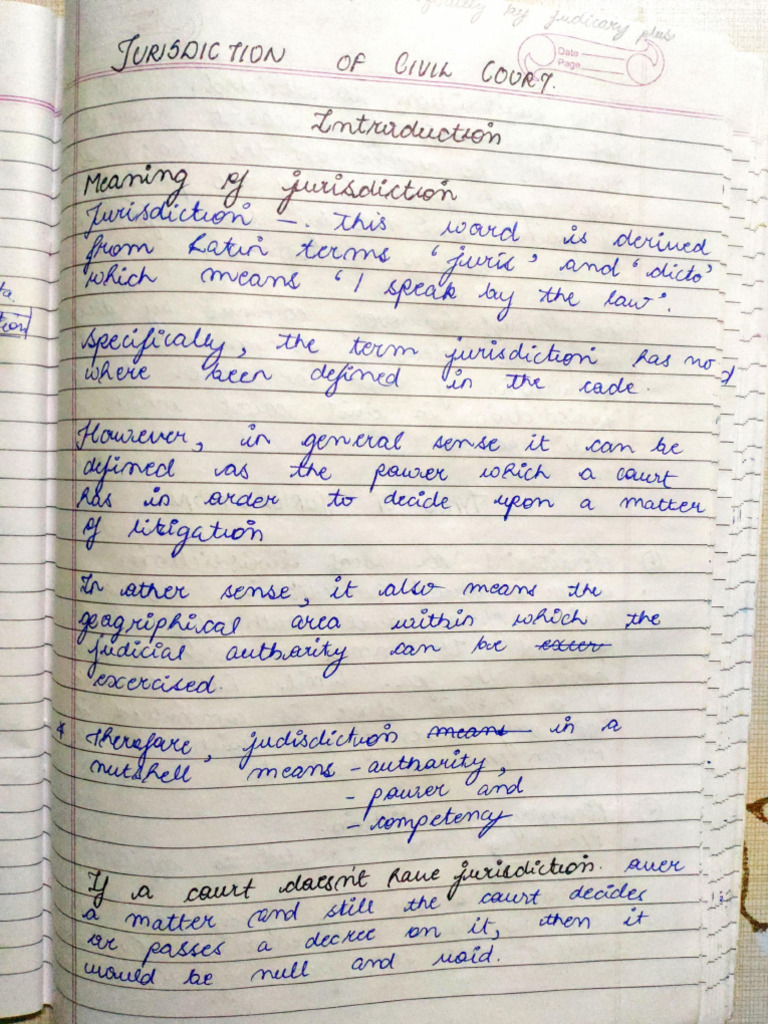 by judicary plus
Date
Page
JURISDICTION OF CIVIL COURT.
Introduction
Meaning of jurisdiction
Jurisdiction – . This word is derived
from Latin terms 'juris' and 'dicto'
which means 'I speak by the law'.
Specifically, the term jurisdiction has no
where been defined in the code.
However, in general sense it can be
defined as the power which a court
has in order to decide upon a matter
of litigation
In other sense, it also means the
geagriphical area within which the
judicial authority can be exer
exercised.
* Therefore, judisdiction means in a
nutshell means - authority,
- power and
- competency
If a court doesn't have jurisdiction. over
a matter (and still the court decides
or passes a decree on it, then it
would be null and void.